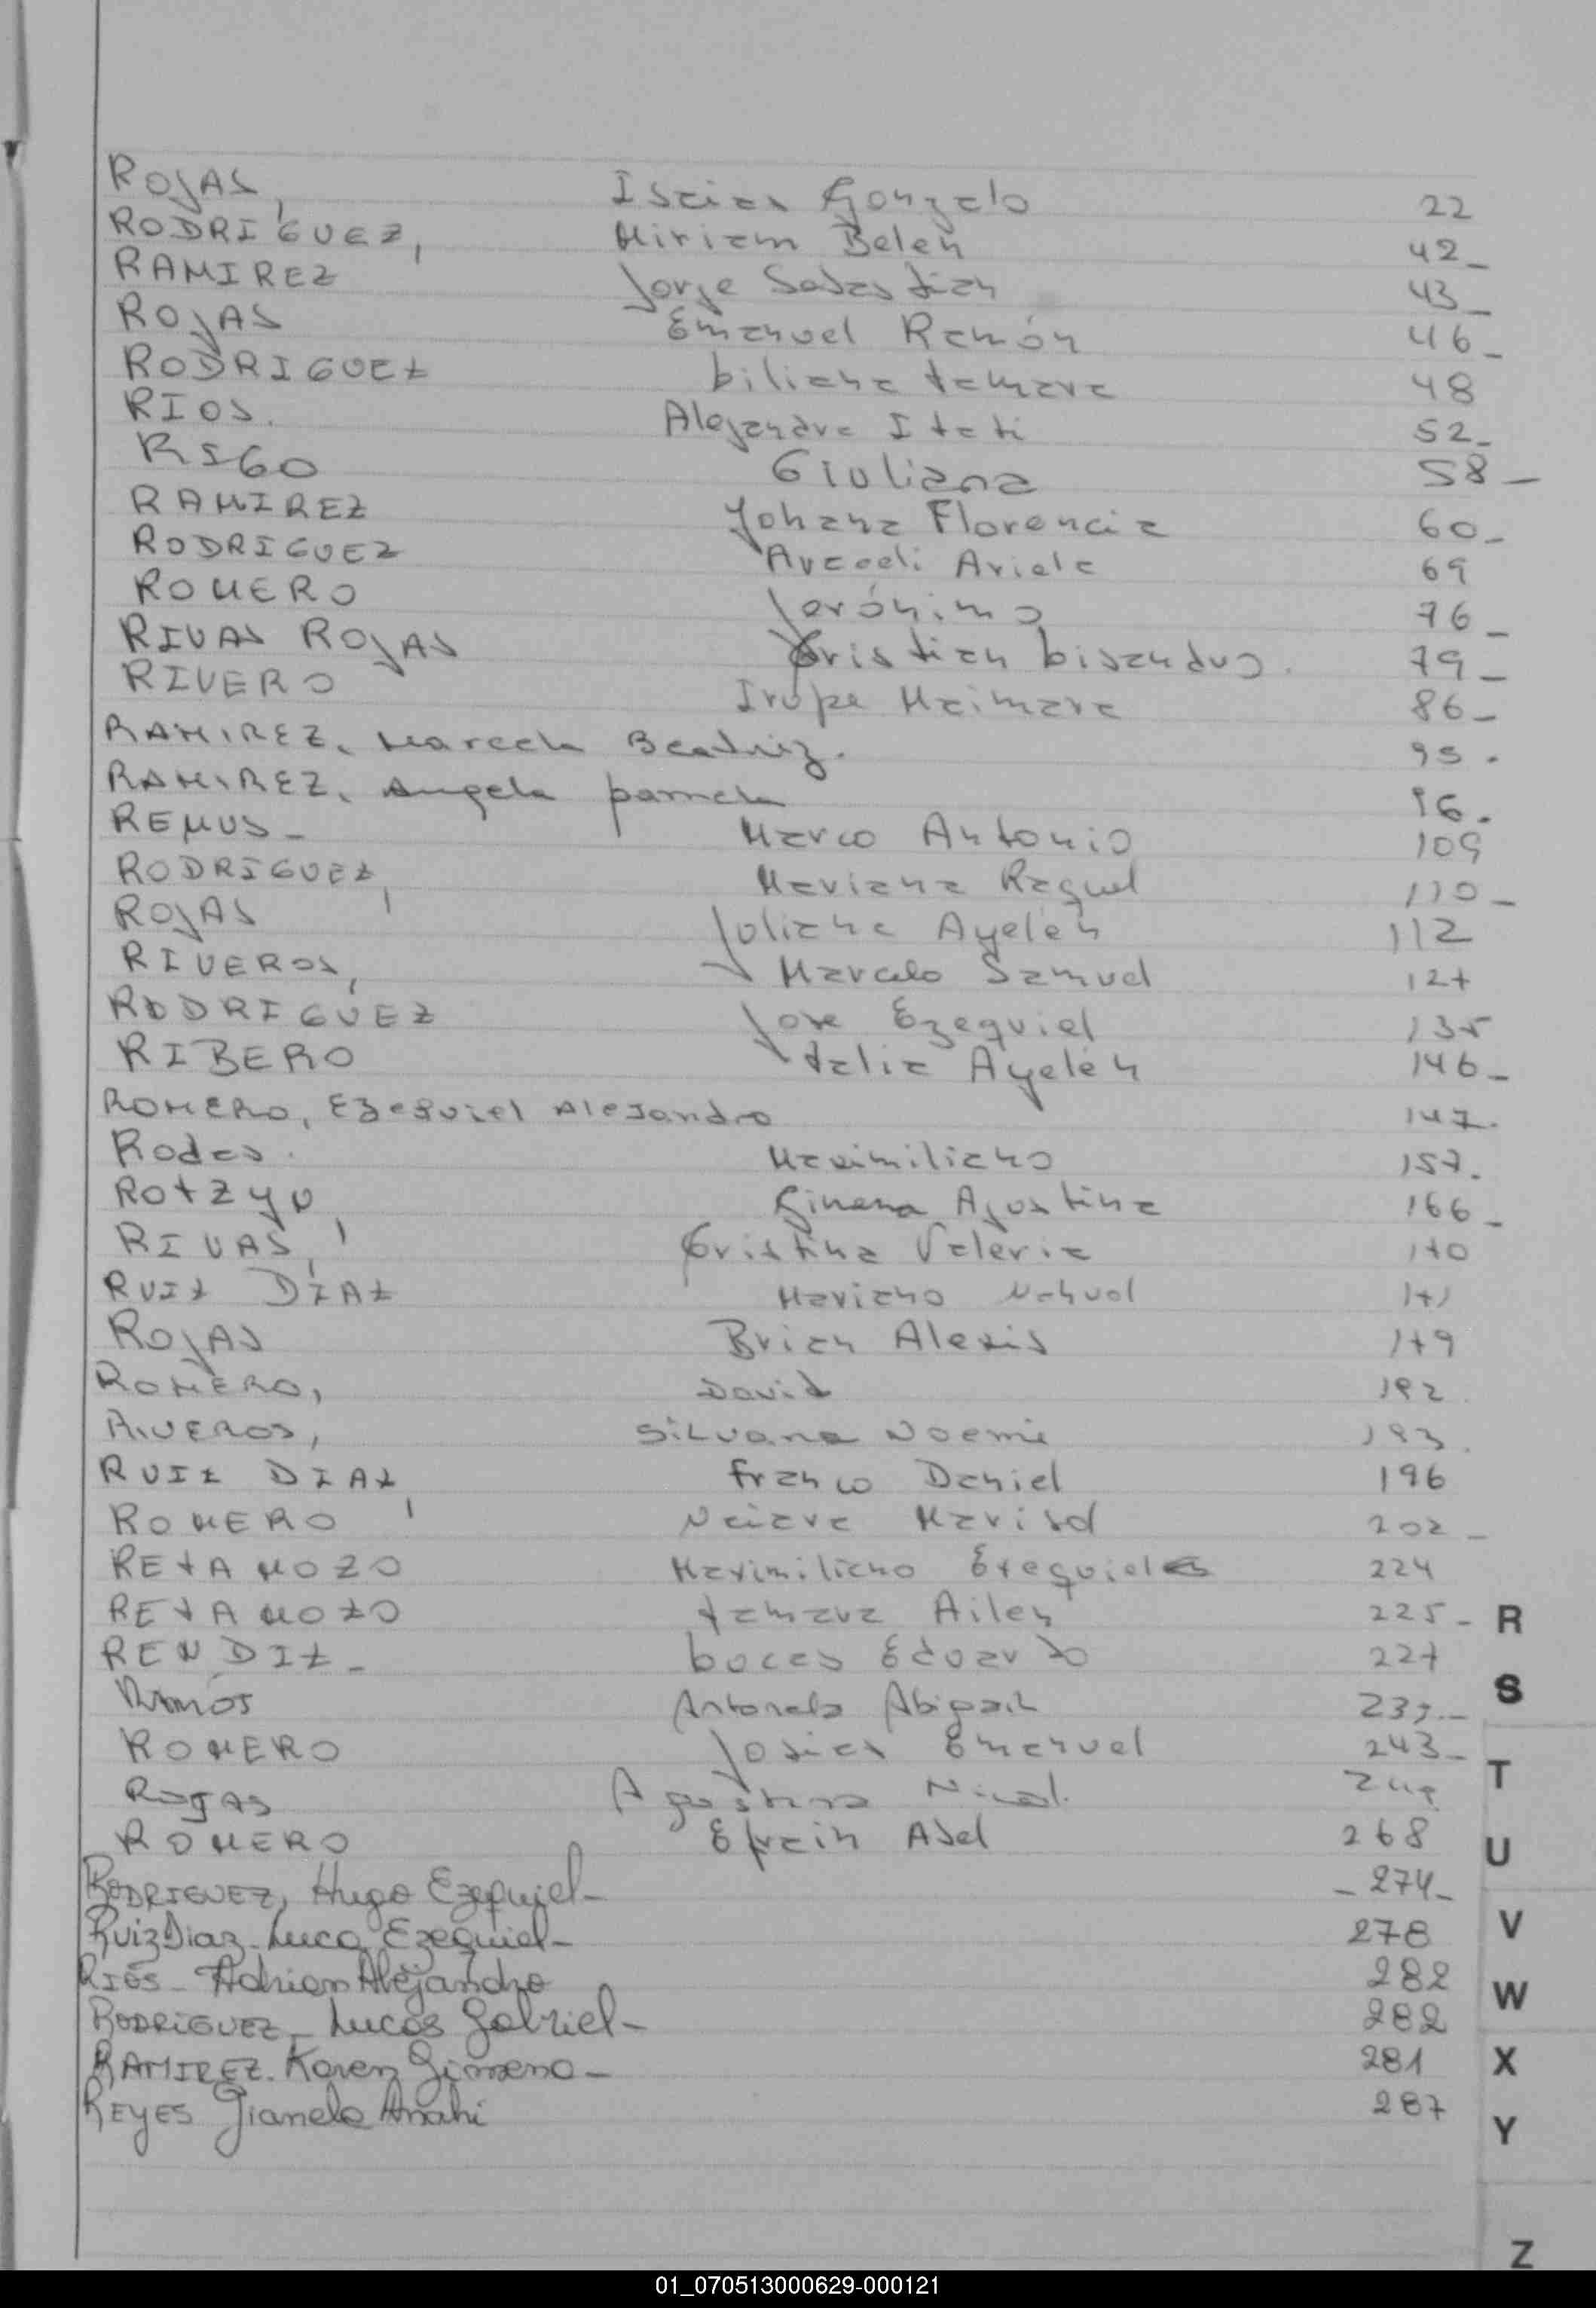 ROJAS, Isaias Gonzalo 22
RODRIGUEZ, Miriam Belen 42_
RAMIREZ Jorge Sebastian 43_
ROJAS Emanuel Ramón 46_
RODRIGUEZ Liliana tamara 48
RIOS. Alejandra Itati 52_
RIGO Giuliana 58_
RAMIREZ Yohana Florencia 60_
RODRIGUEZ Araceli Ariela 69
ROMERO Jerónimo 76_
RIVAS ROJAS Cristian Lisandro. 79_
RIVERO Irupe Maimara 86_
RAMIREZ, Marcela Beatriz. 95.
RAMIREZ, Angela pamela 96.
REMUS_ Marco Antonio 109
RODRIGUEZ, Mariana Raquel 110_
ROJAS Juliana Ayelén 112
RIVEROS, Marcelo Samuel 127
RODRIGUEZ Jose Ezequiel 135
RIBERO talia Ayelén 146_
ROMERO, Ezequiel Alejandro 147.
Rodas. Maximiliano 157.
Rotzyn, Gimena Agustina 166_
RIVAS, Cristina Valeria 170
RUIZ DIAZ Mariano Nahuel 171
ROJAS Brian Alexis 179
ROMERO, David 192
RIVEROS, Silvana Noemi 193.
RUIZ DIAZ, Franco Daniel 196
ROMERO Naiara Marisol 202_
RETAMOZO Maximiliano Exequiel 224
RETAMOZO tamara Ailen 225_
RENDIZ_ Lucas Eduardo 227
Ramos Antonela Abigail
ROMERO Josias Emanuel 243_
Rojas Agustina Nicol.
ROMERO Efrain Abel 268
RODRIGUEZ, Hugo Ezequiel_ _274_
Ruiz Diaz_Luca Ezequiel_ 278
RIOS_ Adrian Alejandro 282
RODRIGUEZ_ Lucas Gabriel_ 282
RAMIREZ. Karen Gimena_ 281
REYES Gianela Anahi 287
R
S
T
U
V
W
X
Y
Z
01_070513000629-000121